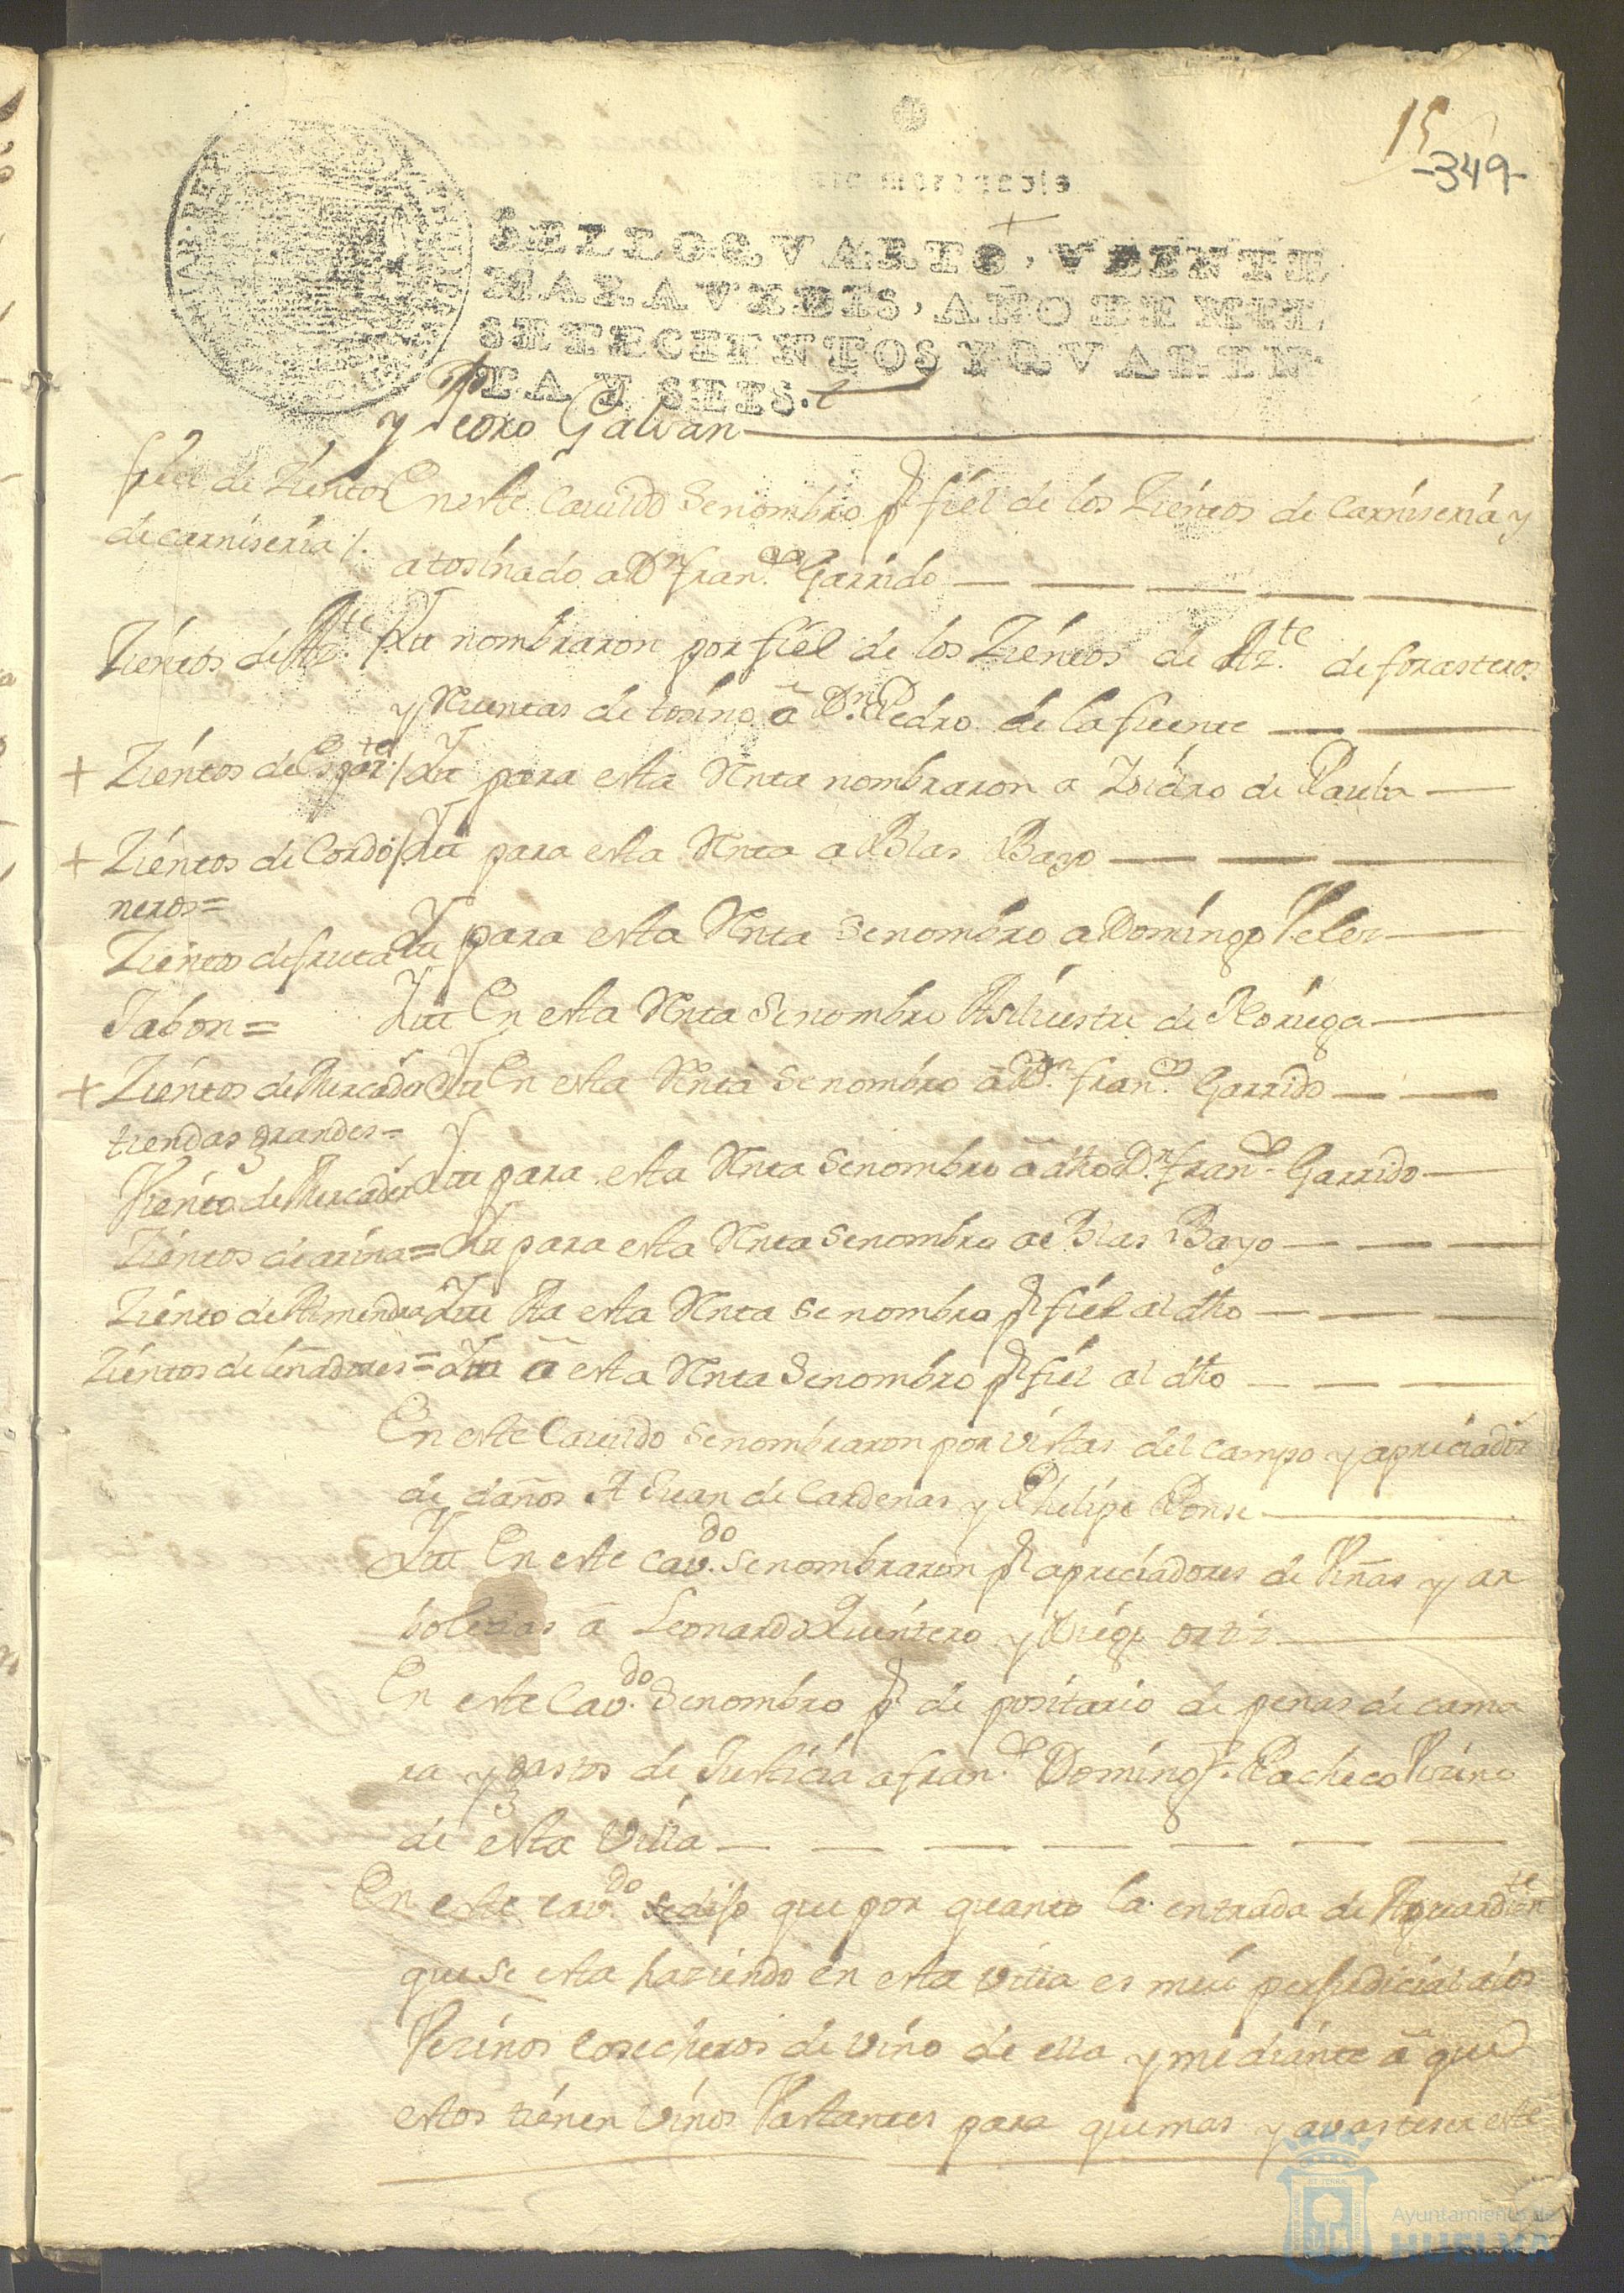 15
-349-
SELLO QVARTO, VEINTE
MARAVEDIS, AÑO DE MIL
SETECIENTOS Y QVAREN-
TA Y SEIS.
y Pedro Galvan
fiel de Zientos
de carniseria
En este Cavildo se nombro pr fiel de los Zientos de carniseria y
atosinado a Dn Franco Garrido
Zientos de Azte
Itt nombraron por fiel de los Zientos de Azte de forasteros
y Rentas de tosino â Dn Pedro de la fuente
+ Zientos de Esparte
Itt para esta Renta nombraron a Isidro de Paula
+ Zientos de Cordo
neros =
Itt para esta Renta a Blas Bayo
Zientos de fruta
Itt para esta Renta se nombro a Domingo Velez
Jabon =
Itt En esta Renta se nombro A Silvestre de Noriega
+ Zientos de Mercada
tiendas grandes =
Itt En esta Renta se nombro â Dn Franco Garrido
Viento de Mercader
Itt para esta Renta se nombro â dho Dn Franco Garrido
Zientos de arina =
Itt para esta Renta se nombro a Blas Bayo
Ziento de Almendra
Itt Pa esta Renta se nombro pr fiel al dho
Zientos de leñadores =
Itt â esta Renta se nombro pr fiel al dho
En este Cavildo se nombraron por vistas del campo y apreciador
de daños A Juan de Cardenas y Phelipe Ponse
Itt En este cavdo se nombraron pr apreciadores de Viñas y ar
boledas â Leonardo Quintero y Diego ortiz
En este Cavdo se nombro pr de positario de penas de cama
ra y gastos de Justicia a franco Domingz Pacheco Vezino
de esta Villa
En este cavdo se dijo que por quanto la entrada de Aguardiente
que se esta haziendo en esta villa es mui perjudicial a los
Vezinos Cosecheros de vino de ella y mediante â que
estos tienen vinos Vastantes para quemar y avasteser este
Ayuntamiento de
HUELVA